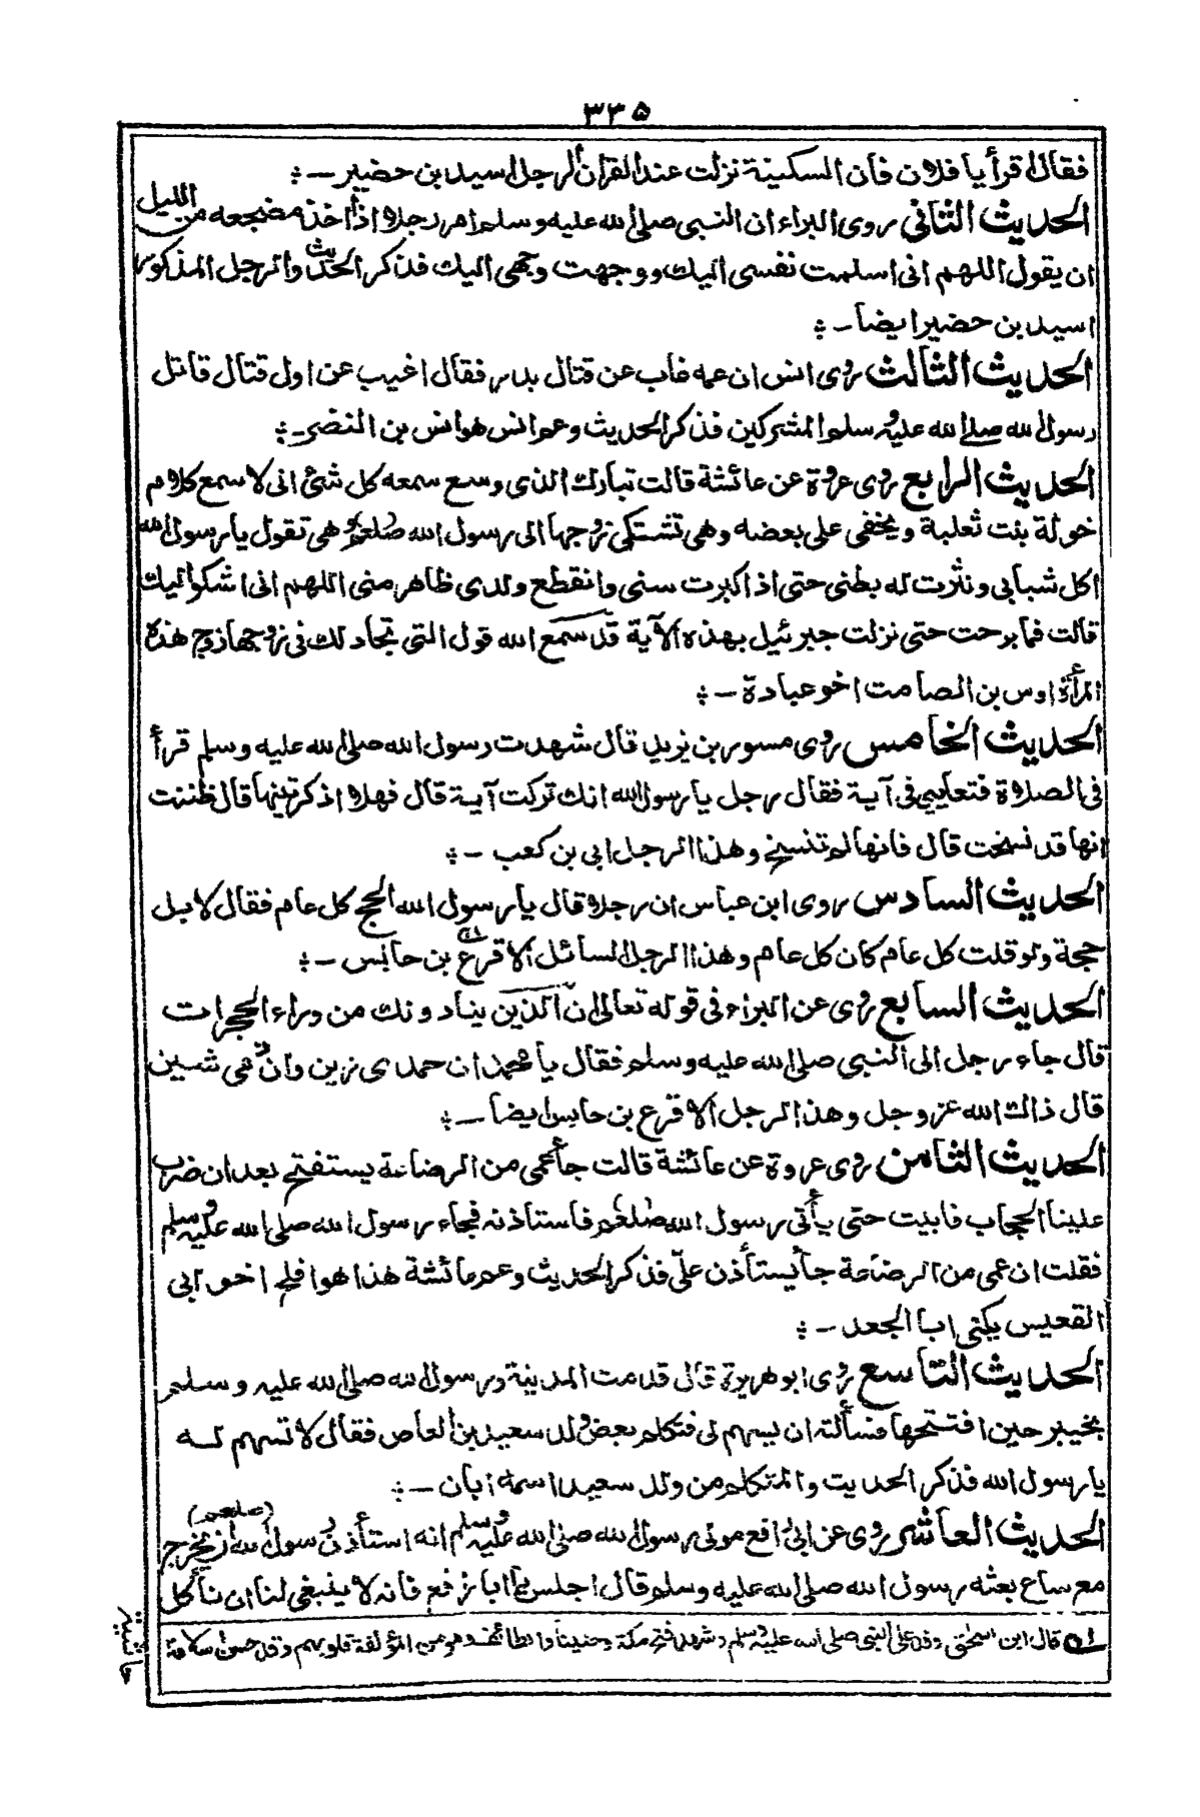 ٣٣٥
فقال اقرأ يا فلان فان السكينة نزلت عند القرآن الرجل اسيد بن حضير ــ ؞
الحديث الثانى روى البراء ان النبى صلى الله عليه وسلم امر رجلا اذا اخذ مضجعه من الليل
ان يقول اللهم انى اسلمت نفسى اليك ووجهت وجهى اليك فذكر الحديث والرجل المذكور
اسيد بن حضير ايضا ــ ؞
الحديث الثالث روى انس ان عمه غاب عن قتال بدر فقال اغيب عن اول قتال قاتل
رسول الله صلى الله عليه وسلم المشركين فذكر الحديث وعم انس هو انس بن النضر ــ ؞
الحديث الرابع روى عروة عن عائشة قالت تبارك الذى وسع سمعه كل شئ انى لاسمع كلام
خولة بنت ثعلبة ويخفى على بعضه وهى تشتكى زوجها الى رسول الله صلعم وهى تقول يا رسول الله
اكل شبابى ونثرت له بطنى حتى اذا كبرت سنى وانقطع ولدى ظاهر منى اللهم انى اشكو اليك
قالت فما برحت حتى نزلت جبرئيل بهذه الآية قد سمع الله قول التى تجادلك فى زوجها زوج هذه
المرأة اوس بن الصامت اخو عبادة ــ ؞
الحديث الخامس روى مسور بن يزيد قال شهدت رسول الله صلى الله عليه وسلم قرأ
فى الصلاة فتعايى فى آية فقال رجل يا رسول الله انك تركت آية قال فهلا اذكرتينها قال ظننت
انها قد نسخت قال فانها لم تنسخ وهذا الرجل ابى بن كعب ــ ؞
الحديث السادس روى ابن عباس ان رجلا قال يا رسول الله الحج كل عام فقال لا بل
حجة ولو قلت كل عام كان كل عام وهذا الرجل السائل الاقرع بن حابس ــ ؞
الحديث السابع روى عن البراء فى قوله تعالى ان الذين ينادونك من وراء الحجرات
قال جاء رجل الى النبى صلى الله عليه وسلم فقال يا محمد ان حمدى زين وان ذمى شين
قال ذاك الله عز وجل وهذا الرجل الاقرع بن حابس ايضا ــ ؞
الحديث الثامن روى عروة عن عائشة قالت جاء عمى من الرضاعة يستفتح بعد ان ضرب
علينا الحجاب فابيت حتى يأتى رسول الله صلعم فاستاذنه فجاء رسول الله صلى الله عليه وسلم
فقلت ان عمى من الرضاعة جاء يستأذن علىّ فذكر الحديث وعم عائشة هذا هو افلح اخو ابى
القعيس يكنى ابا الجعد ــ ؞
الحديث التاسع روى ابو هريرة قال قدمت المدينة ورسول الله صلى الله عليه وسلم
بخيبر حين افتتحها فسألته ان يسهم لى فتكلم بعض ولد سعيد بن العاص فقال لا تسهم له
يا رسول الله فذكر الحديث والمتكلم من ولد سعيد اسمه ابان ــ ؞
الحديث العاشر روى عن ابى رافع مولى رسول الله صلى الله عليه وسلم انه استأذن رسول الله (صلعم) ان يخرج
مع ساع بعثه رسول الله صلى الله عليه وسلم قال اجلس يا ابا رافع فانه لا ينبغى لنا ان نأكل
حاشية
له قال ابن اسحٰق وفد على النبى صلى الله عليه وسلم وشهد فتح مكة وحنينا والطائف وهو من المؤلفة قلوبهم وقد حسن اسلامه